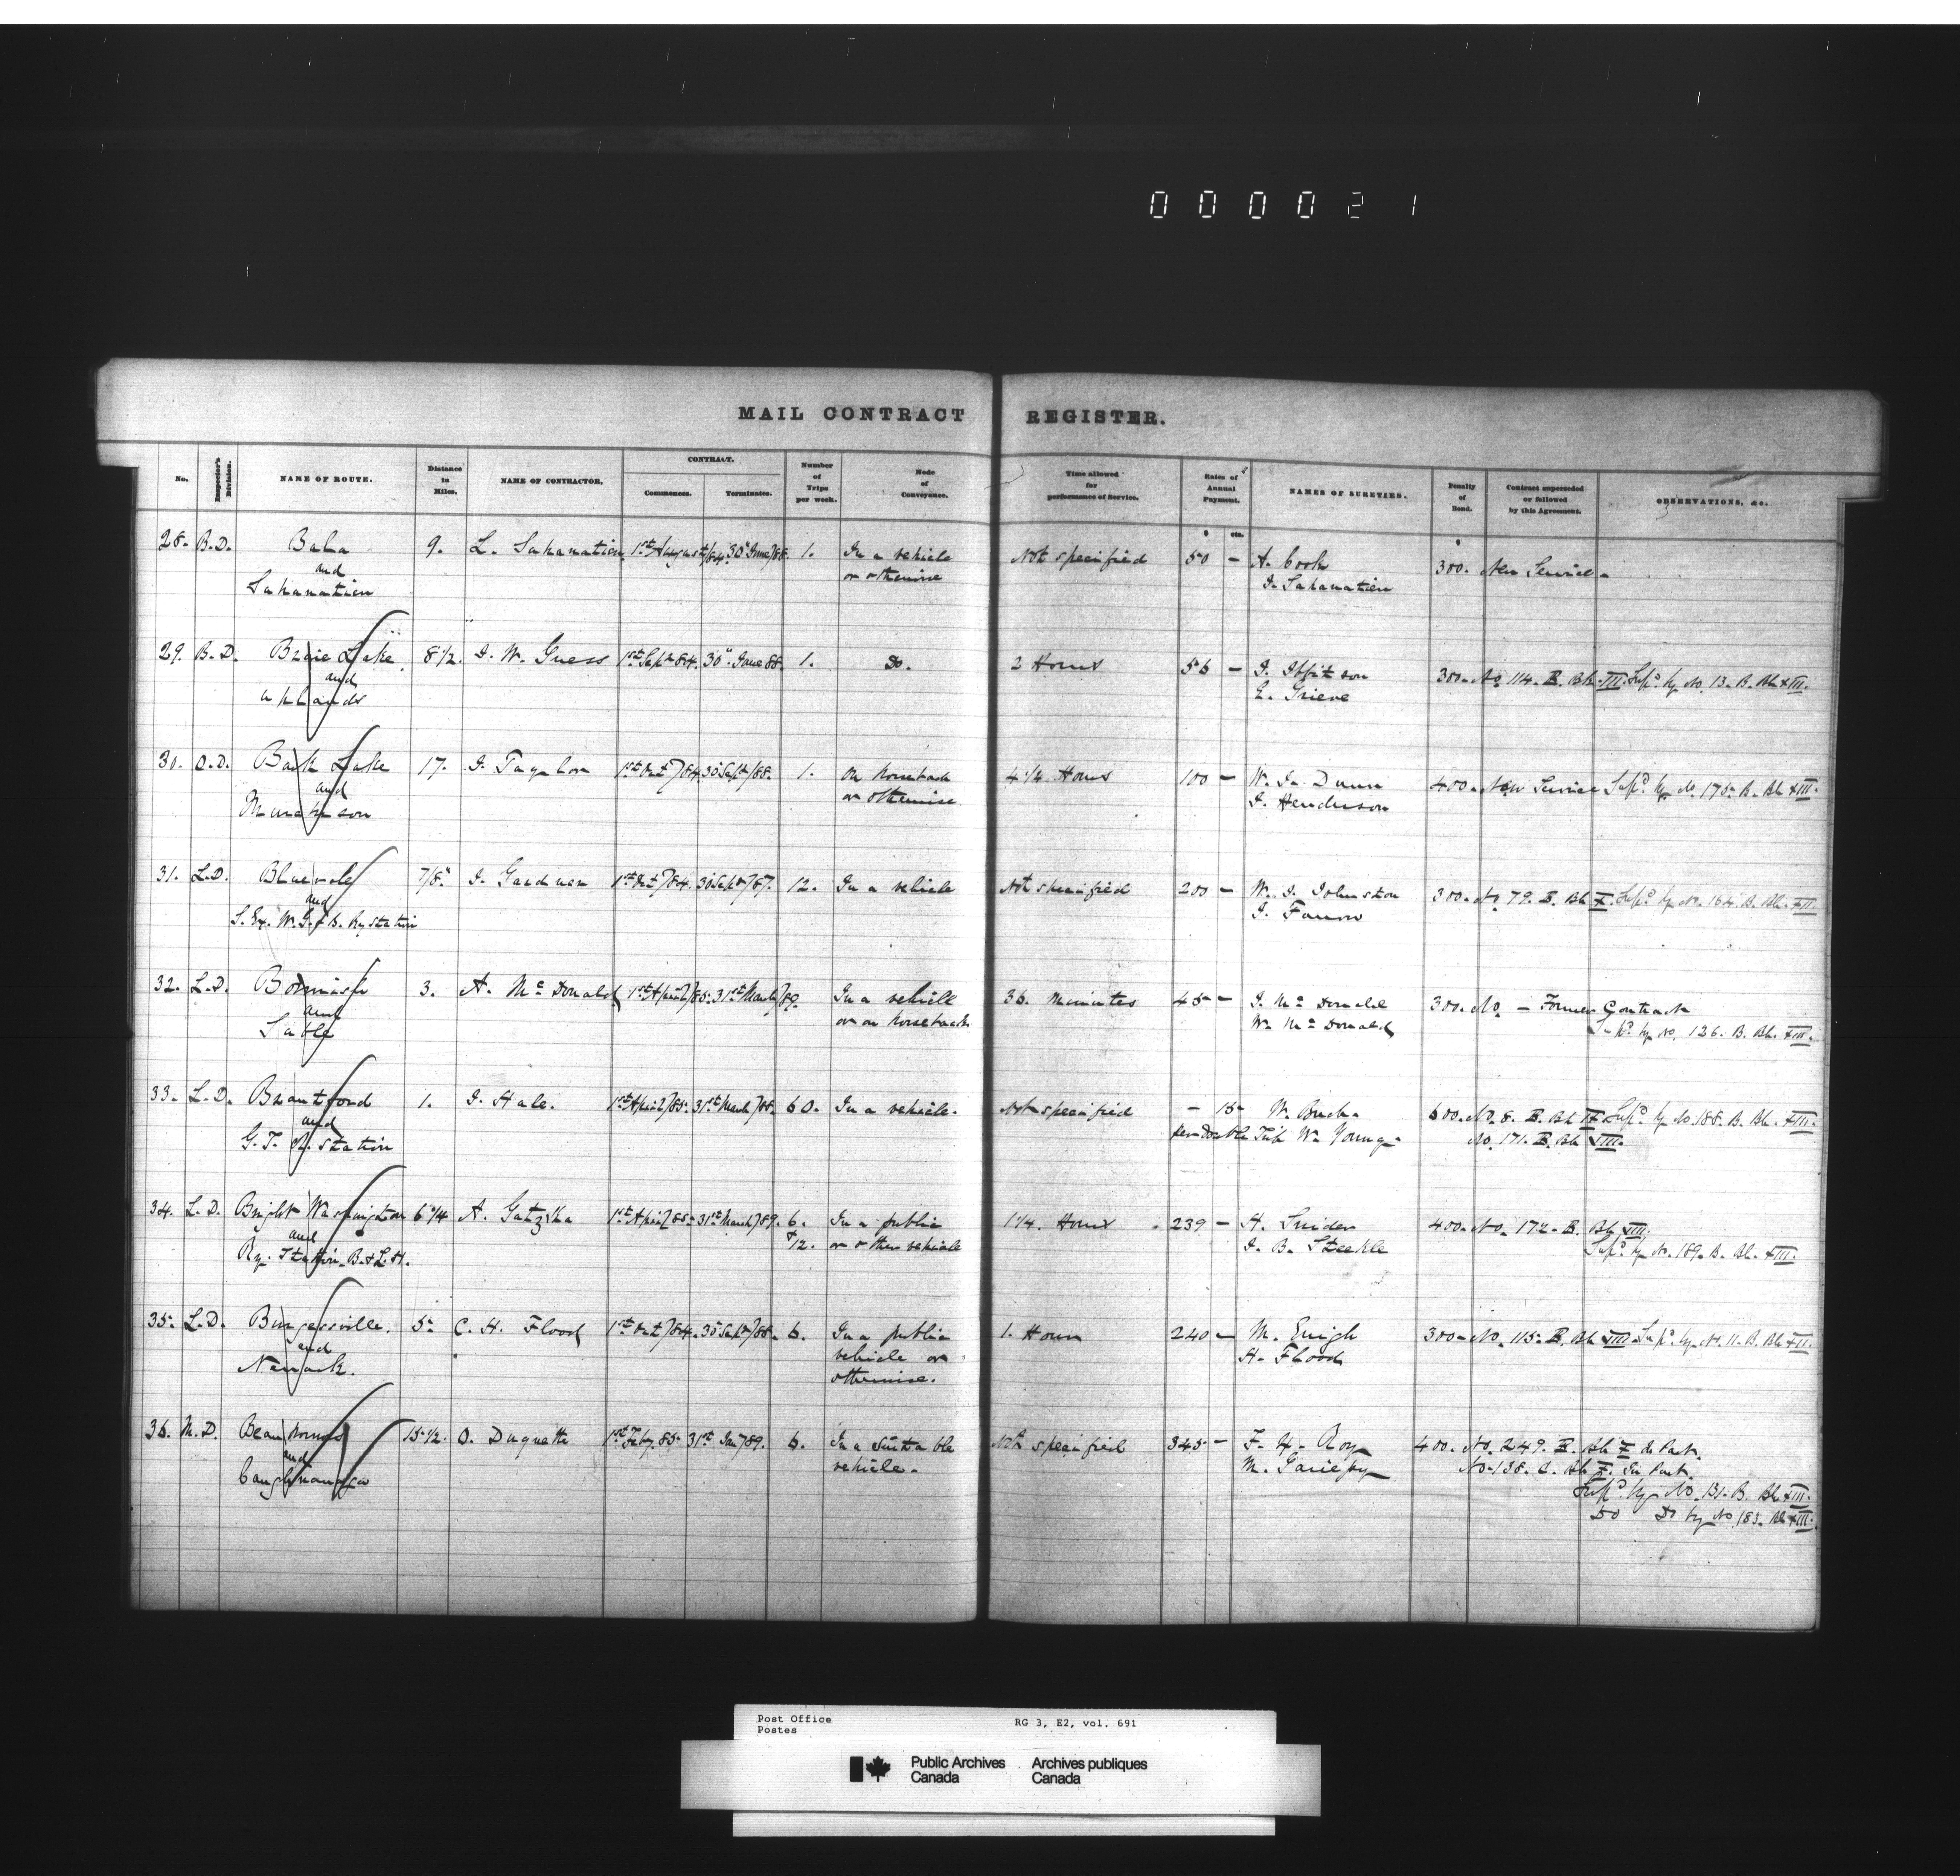 000021
MAIL CONTRACT REGISTER.
No. Inspector's Division. NAME OF ROUTE. Distance in Miles. NAME OF CONTRACTOR. CONTRACT. Commences. Terminates. Number of Trips per week. Mode of Conveyance. Time allowed for performance of Service. Rates of Annual Payment. NAMES OF SURETIES. Penalty of Bond. Contract superseded or followed by this Agreement. OBSERVATIONS, &c.
$ cts. $
28. B.D. Bala 9. L. Sahanatien 1st August/84. 30th June/88. 1. In a vehicle Not specified 50 - A. Cook 300. New Service.
and or otherwise I. Sahanatien
Sahanatien
29. B.D. Lake 8 1/2. I. W. Guess 1st Sept 84. 30" June 88. 1. Do. 2 Hours 56 - I. 300. No 114. B. Bk. III. Sup'd by No. 13. B. Bk XIII.
and E. Grieve
Uplands
30. O.D. Bark Lake 17. I. Taylor 1st Oct/84. 30 Sept/88. 1. On horseback 4 1/4 Hours 100 - W. I. Dunn 400. New Service Sup'd by No 175. B. Bk XIII.
and or otherwise I. Henderson
Murchison
31. L.D. Bluevale 7/8" I. Gardner 1st Oct/84. 30 Sept/87. 12. In a vehicle Not specified 200 - W. I. Johnston 300. No 79. B. Bk X. Sup'd by No. 164. B. Bk. XII
and I. Farrow
S. Ex. W.G. & B. Ry Station
32. L.D. 3. A. McDonald 1st April/85. 31st March/89. In a vehicle 36. Minutes 45 - I. McDonald 300. No. - Former Contract
and or on horseback W. McDonald Sup'd by No. 126. B. Bk. XIII.
Sable
33. L.D. Brantford 1. I. Hale. 1st April/85. 31st March/88. 60. In a vehicle. Not specified - 15 W. Buck. 600. No. 8. B. Bk IX Sup'd by No. 188. B. Bk. XIII.
and per Double Trip W. Young. No. 171. B. Bk VIII.
G.T.R. Station
34. L.D. Bright Washington 6 3/4 A. Gatzka 1st April/85. 31st March/89. 6. In a public 1 1/4. Hours 239 - H. Snider 400. No. 172. B. Bk VIII.
and & 12. or other vehicle I. B. Steckle Sup'd by No. 189. B. Bk. XIII.
Ry. Station. B. & L.H.
35. L.D. Burgessville. 5. C. H. Flood 1st Oct/84. 30 Sept/88. 6. In a public 1. Hour 240 - M. Emigh 300. No. 115. B. Bk VIII Sup'd by No. 11. B. Bk XII.
and vehicle or H. Flood
Newark. otherwise.
36. M.D. Beauharnois 15 1/2. O. Duquette 1st Feby. 85. 31st Jan/89. 6. In a suitable Not specified 345 - F. X. Roy 400. No. 249. B. Bk X In Part.
and vehicle. M. Gariepy No. 138. C. Bk X. In Part.
Caughnawaga Sup'd by No. 131. B. Bk XIII.
Do Do by No 183. Bk XIII.
Post Office RG 3, E2, vol. 691
Postes
Public Archives Archives publiques
Canada Canada